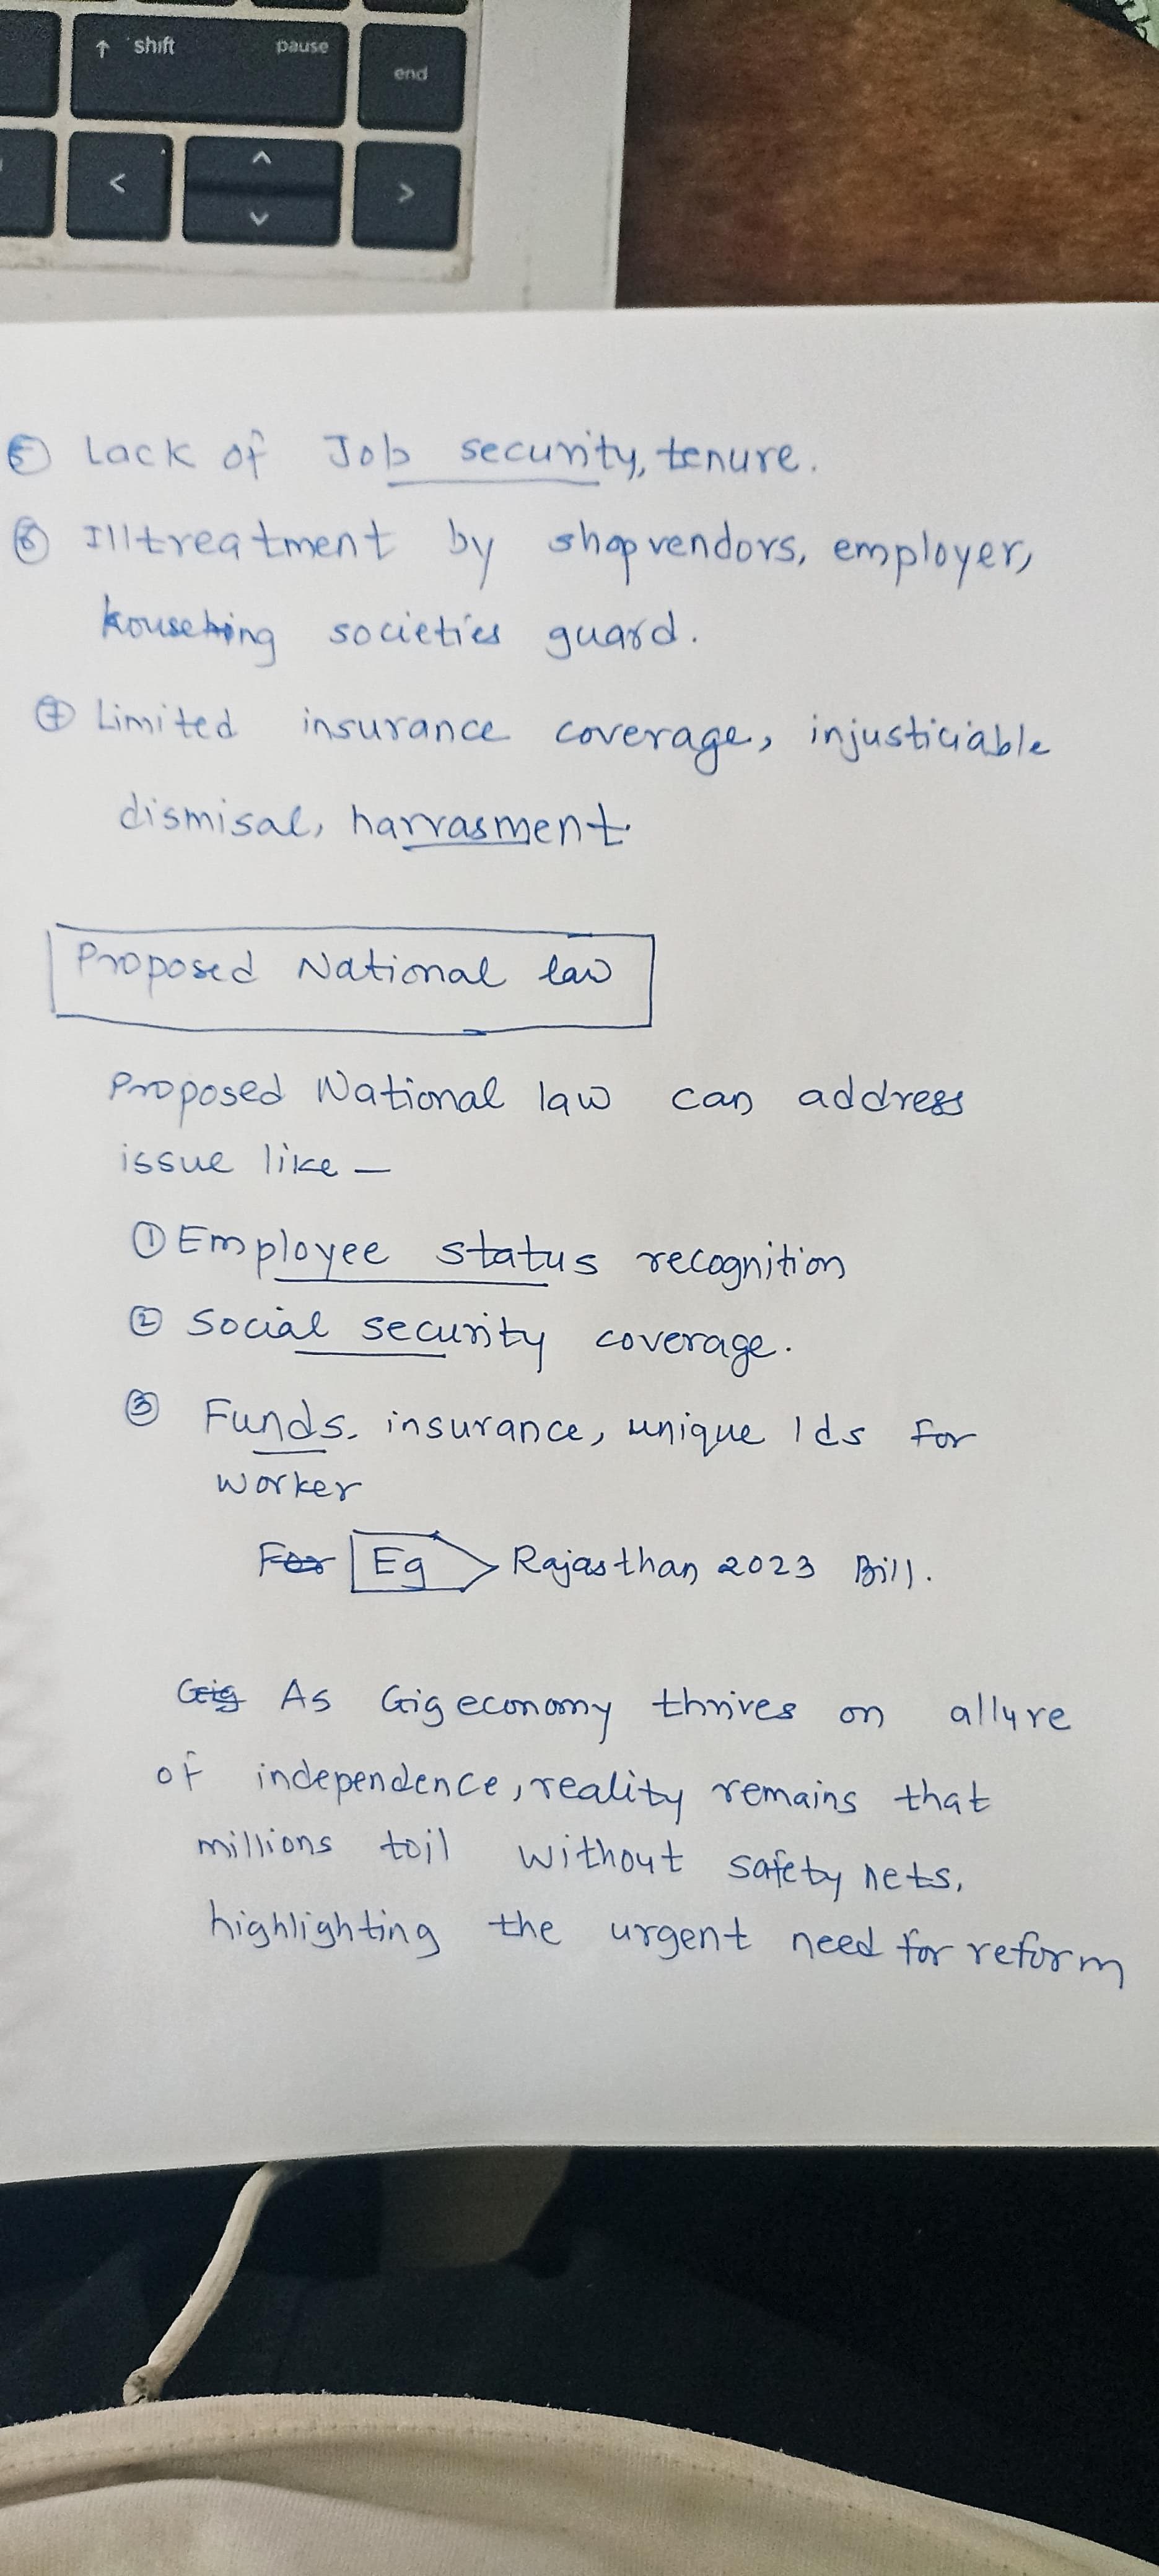 ↑ shift pause
end
< ^ >
v
⑤ Lack of Job security, tenure.
⑥ Illtreatment by shopvendors, employer,
housing societies guard.
⑦ Limited insurance coverage, injusticiable
dismisal, harrasment.
Proposed National law
Proposed National law can address
issue like —
① Employee status recognition
② Social security coverage.
③ Funds, insurance, unique Ids for
worker
For Eg Rajasthan 2023 Bill.
Gig As Gig economy thrives on allure
of independence, reality remains that
millions toil without safety nets,
highlighting the urgent need for reform